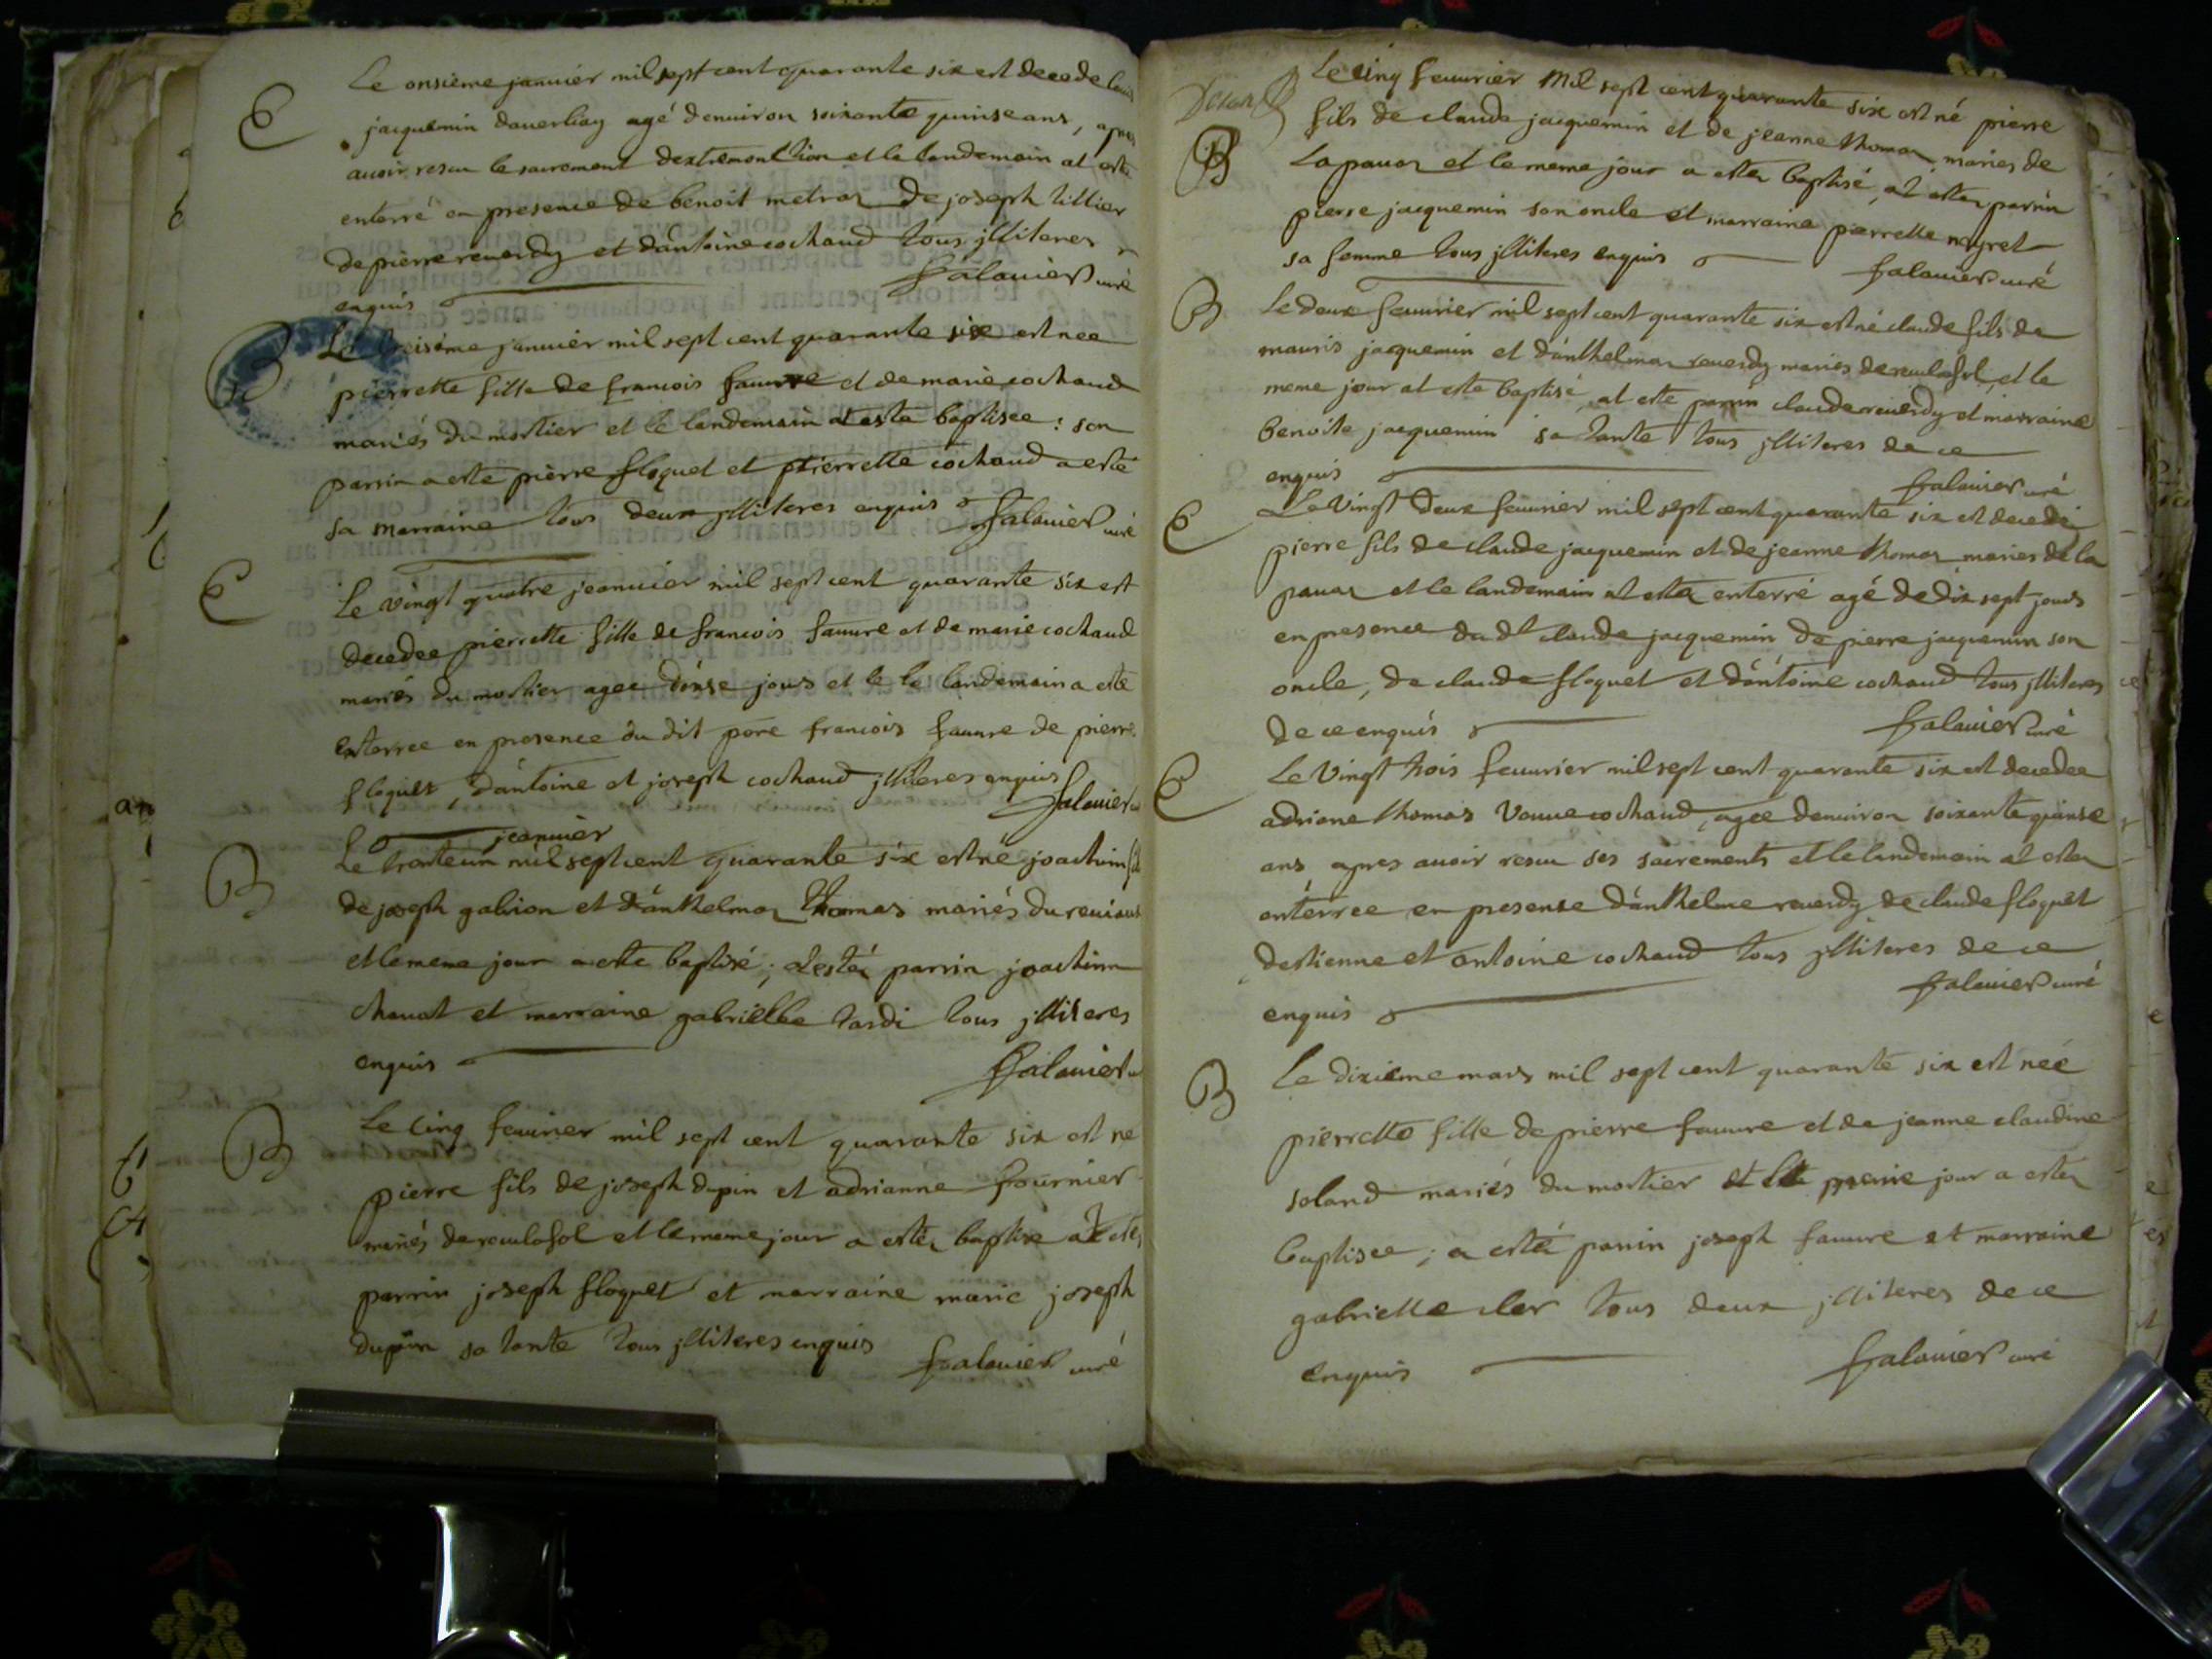 E
Le onsième januiér mil sept cent quarante six est decede
jacquemin dauerliay agé denuiron soixante quinse ans, apres
auoir reseu le sacrement dextremonction et le landemain at esté
enterré en presence de benoit metraz de joseph tillier
de pierre reuerdy et dántoine cochaud tous jlliteres
enquis falauier curé
B
Le treisième januiér mil sept cent quarante six est nee
pierrette fille de francois fauure et de marie cochaud
mariés du mortier et le landemain at esté baptisee : son
parrin a esté pierre floquet et pierrette cochaud a esté
sa marraine tous deux jlliteres enquis falauier curé
E
Le vingt quatre jeanuier mil sept cent quarante six est
decedee pierrette fille de francois fauure et de marie cochaud
mariés du mortier agee dónse jours et le le landemain a esté
enterree en presence du dit pere francois fauure de pierre
floquet, dántoine et joseph cochaud jlliteres enquis falauier
jeanuier
B
Le tranteun mil sept cent quarante six est né joachim fils
de joseph gabrion et dánthelmaz thomas mariés du
et le meme jour a esté baptisé ; at estéz parrin joachim
chauat et marraine gabriellle tardi tous jlliteres
enquis falauier
B
Le cinq feurier mil sept cent quarante six est né
pierre fils de joseph dupin et adrianne fournier
mariés de reculafol et le méme jour a estéz baptisé at estéz
parrin joseph floquet et marraine marie joseph
dupin sa tante tous jlliteres enquis falauier curé
B
Le cinq feuurier Mil sept cent quarante six est né pierre
fils de claude jacquemin et de jeanne thomaz maries de
La pauaz et le meme jour a estéz baptisé, at estéz parrin
pierre jacquemin son oncle et marraine pierrette nayret
sa femme tous jlliteres enquis falauier curé
B
Le deux feuurier mil sept cent quarante six est né claude fils de
mauris jacquemin et dánthelmaz reuerdy maries de reculafol, et le
meme jour at esté baptisé, at esté parrin claude reuerdy et marraine
benoite jacquemin sa tante tous jlliteres de ce
enquis falauier curé
E
Le Vingt deux feuurier mil sept cent quarante six est decedé
pierre fils de claude jacquemin et de jeanne thomaz maries de la
pauaz et le landemain at estéz enterré agé de dix sept jours
en presence du dt claude jacquemin de pierre jacquemin son
oncle, de claude floquet et dántoine cochaud tous jlliteres
de ce enquis falauier curé
E
Le Vingt trois feuurier mil sept cent quarante six est decedee
adriane thomas Veuue cochaud, agee denuiron soixante quinse
ans apres auoir reseu ses sacrements et le landemain at estéz
enterree en presense dánthelme reuerdy de claude floquet
destienne et antoine cochaud tous jlliteres de ce
enquis falauier curé
B
Le dixième mars mil sept cent quarante six est née
pierrette fille de pierre fauure et de jeanne claudine
soland mariés du mortier et le meme jour a estéz
baptisee ; a estéz parrin joseph fauure et marraine
gabrielle cler tous deux jlliteres de ce
enquis falauier curé